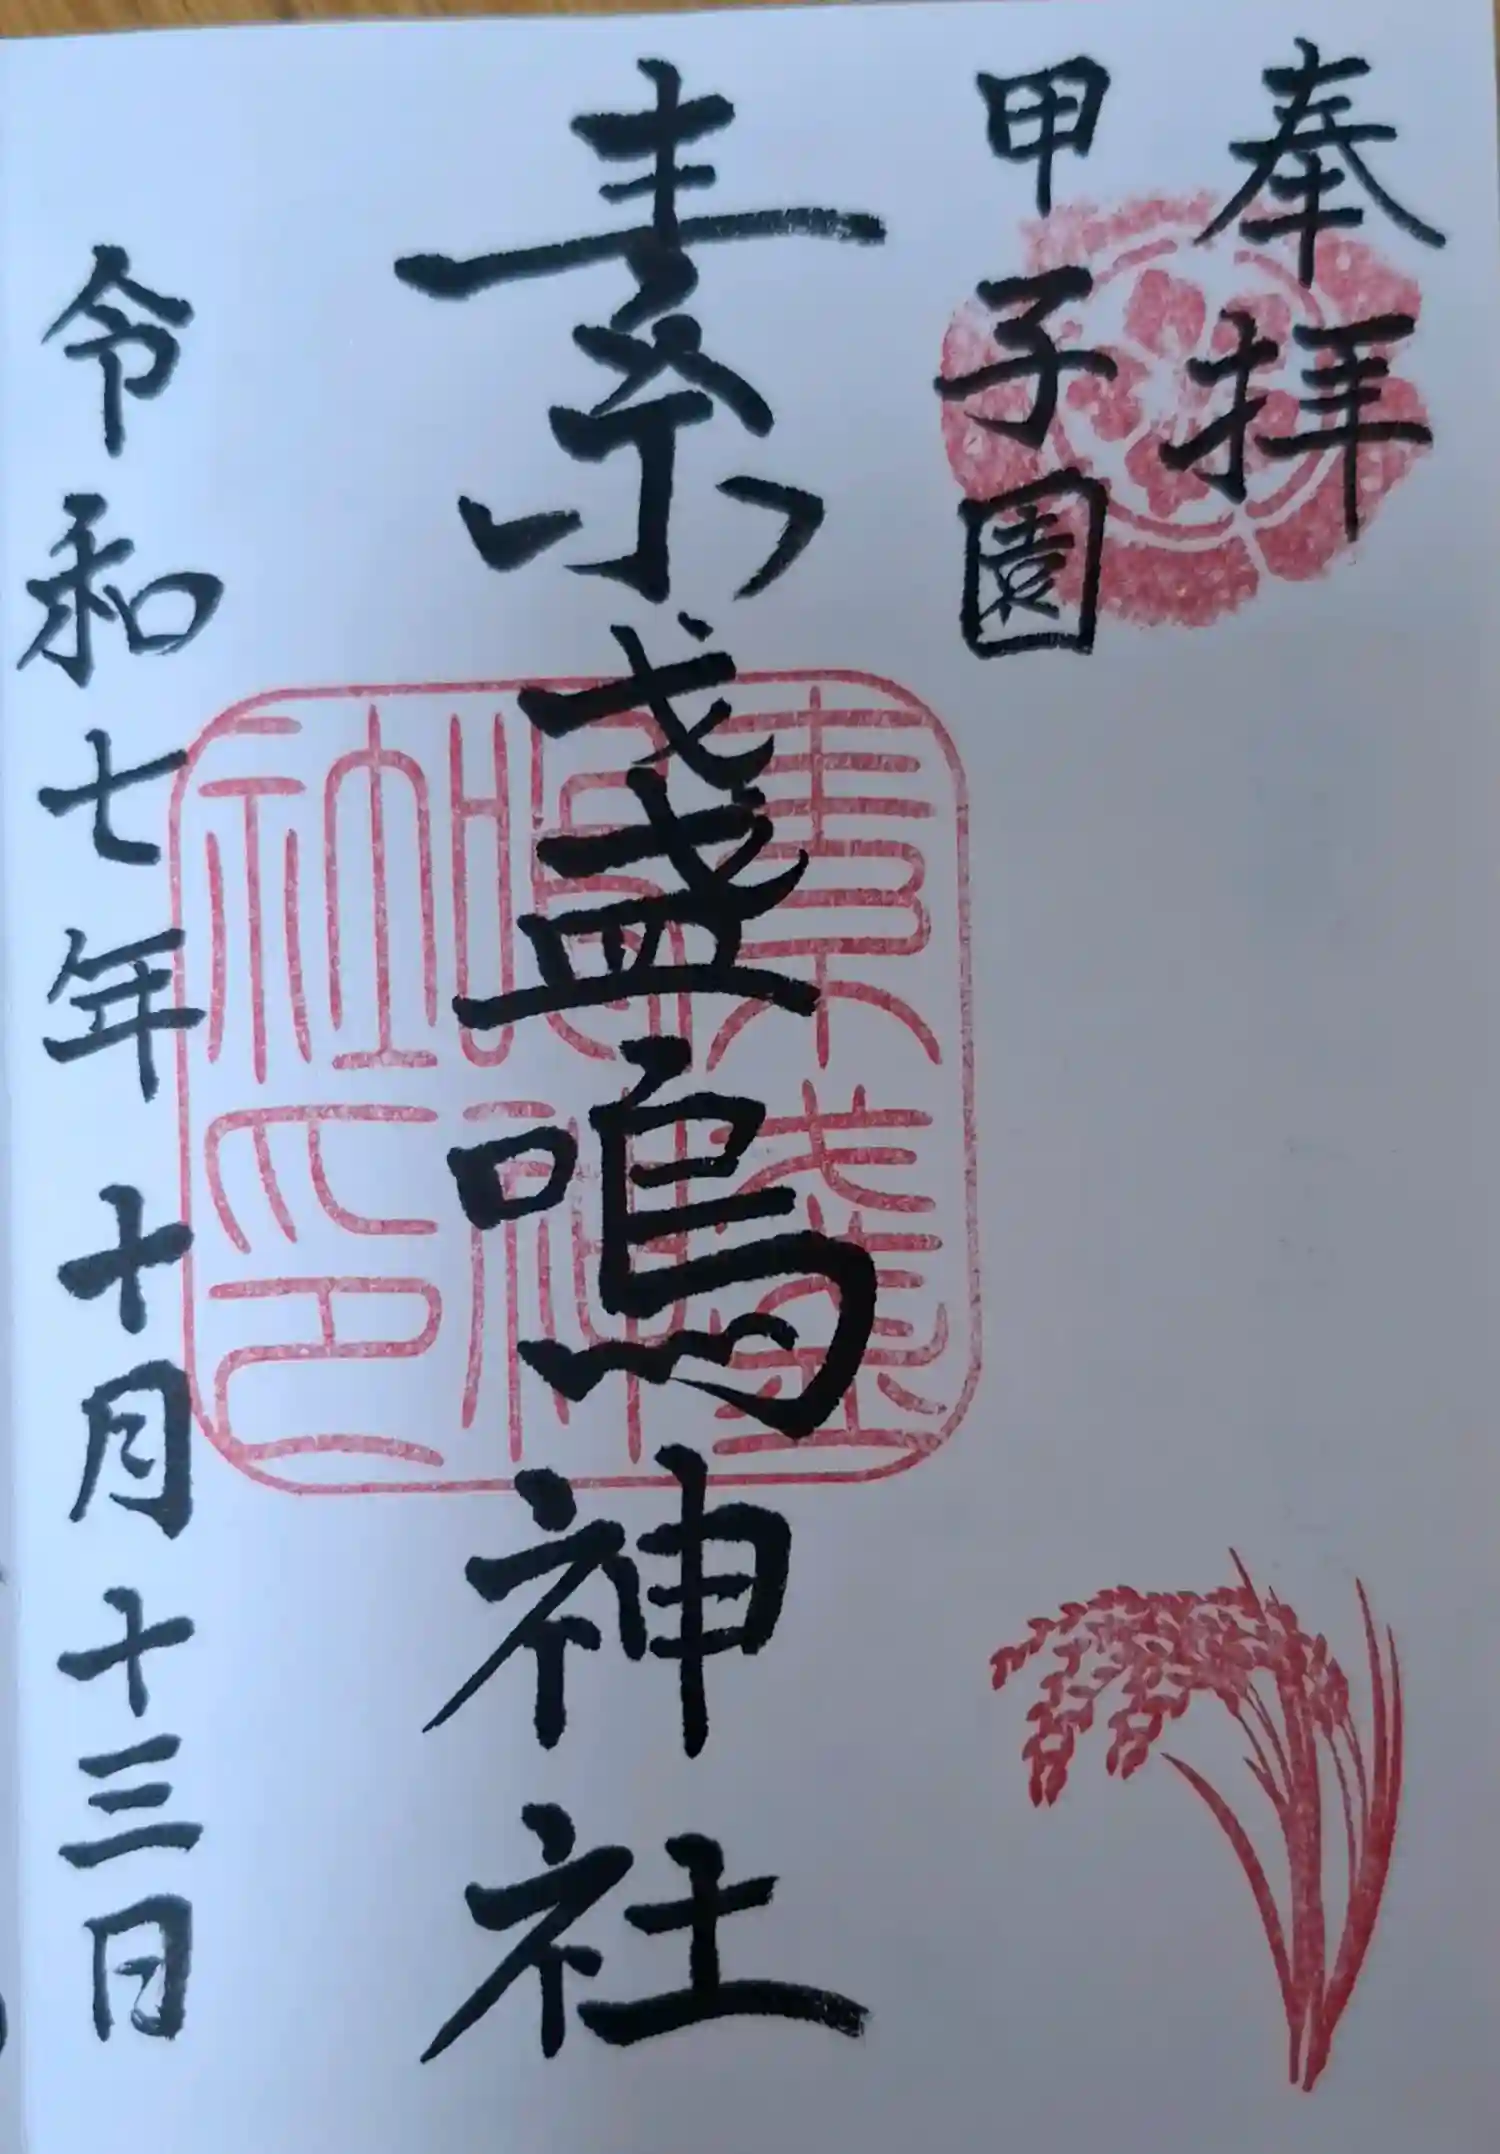 奉拝
甲子園
素盞嗚神社
素盞
嗚神
社印
令和七年十月十三日